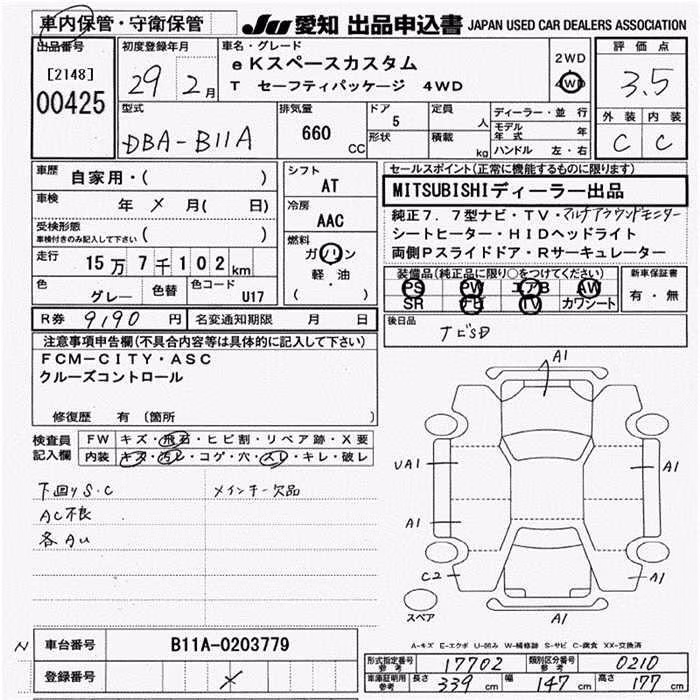 車内保管・守衛保管
JU 愛知 出品申込書 JAPAN USED CAR DEALERS ASSOCIATION
出品番号
[2148]
00425
初度登録年月
29 2月
車名・グレード
eKスペースカスタム
T セーフティパッケージ 4WD
2WD
4WD
評価点
3.5
外装 内装
C C
型式
DBA-B11A
排気量
660 CC
ドア
5
形状
定員
人
積載
kg
ディーラー・並行
モデル年式 年
ハンドル 左・右
車歴
自家用・( )
車検
年 メ 月( 日)
受検形態
車検付きのみ記入して下さい ( )
走行
15万7千102km
色
グレー
色替
色コード
U17
シフト
AT
冷房
AAC
燃料
ガソリン
軽・油
( )
セールスポイント(正常に機能するものに限ります)
MITSUBISHIディーラー出品
純正7.7型ナビ・TV・マルチアラウンドモニター
シートヒーター・HIDヘッドライト
両側Pスライドドア・Rサーキュレーター
装備品(純正品に限り○をつけてください)
PS PW エアB AW
SR ナビ TV カワシート
新車保証書
有・無
R券 9190 円
名変通知期限 月 日
後日品
ナビSD
注意事項申告欄(不具合内容等は具体的に記入して下さい)
FCM-CITY・ASC
クルーズコントロール
修復歴 有 〔箇所 〕
検査員記入欄
FW キズ・飛石・ヒビ割・リペア跡・X要
内装 キズ・汚レ・コゲ・穴・スレ・キレ・破レ
下回りS・C
AC不良
各AU
メインキー欠品
A1
UA1
A1
A1
C2
A1
A1
スペア
A-キズ E-エクボ U-凹み W-補修跡 S-サビ C-腐食 XX-交換済
N
車台番号 B11A-0203779
登録番号 メ
形式指定番号参考 17702
類別区分番号参考 0210
車庫証明用参考 長さ 339 cm 幅 147 cm 高さ 177 cm